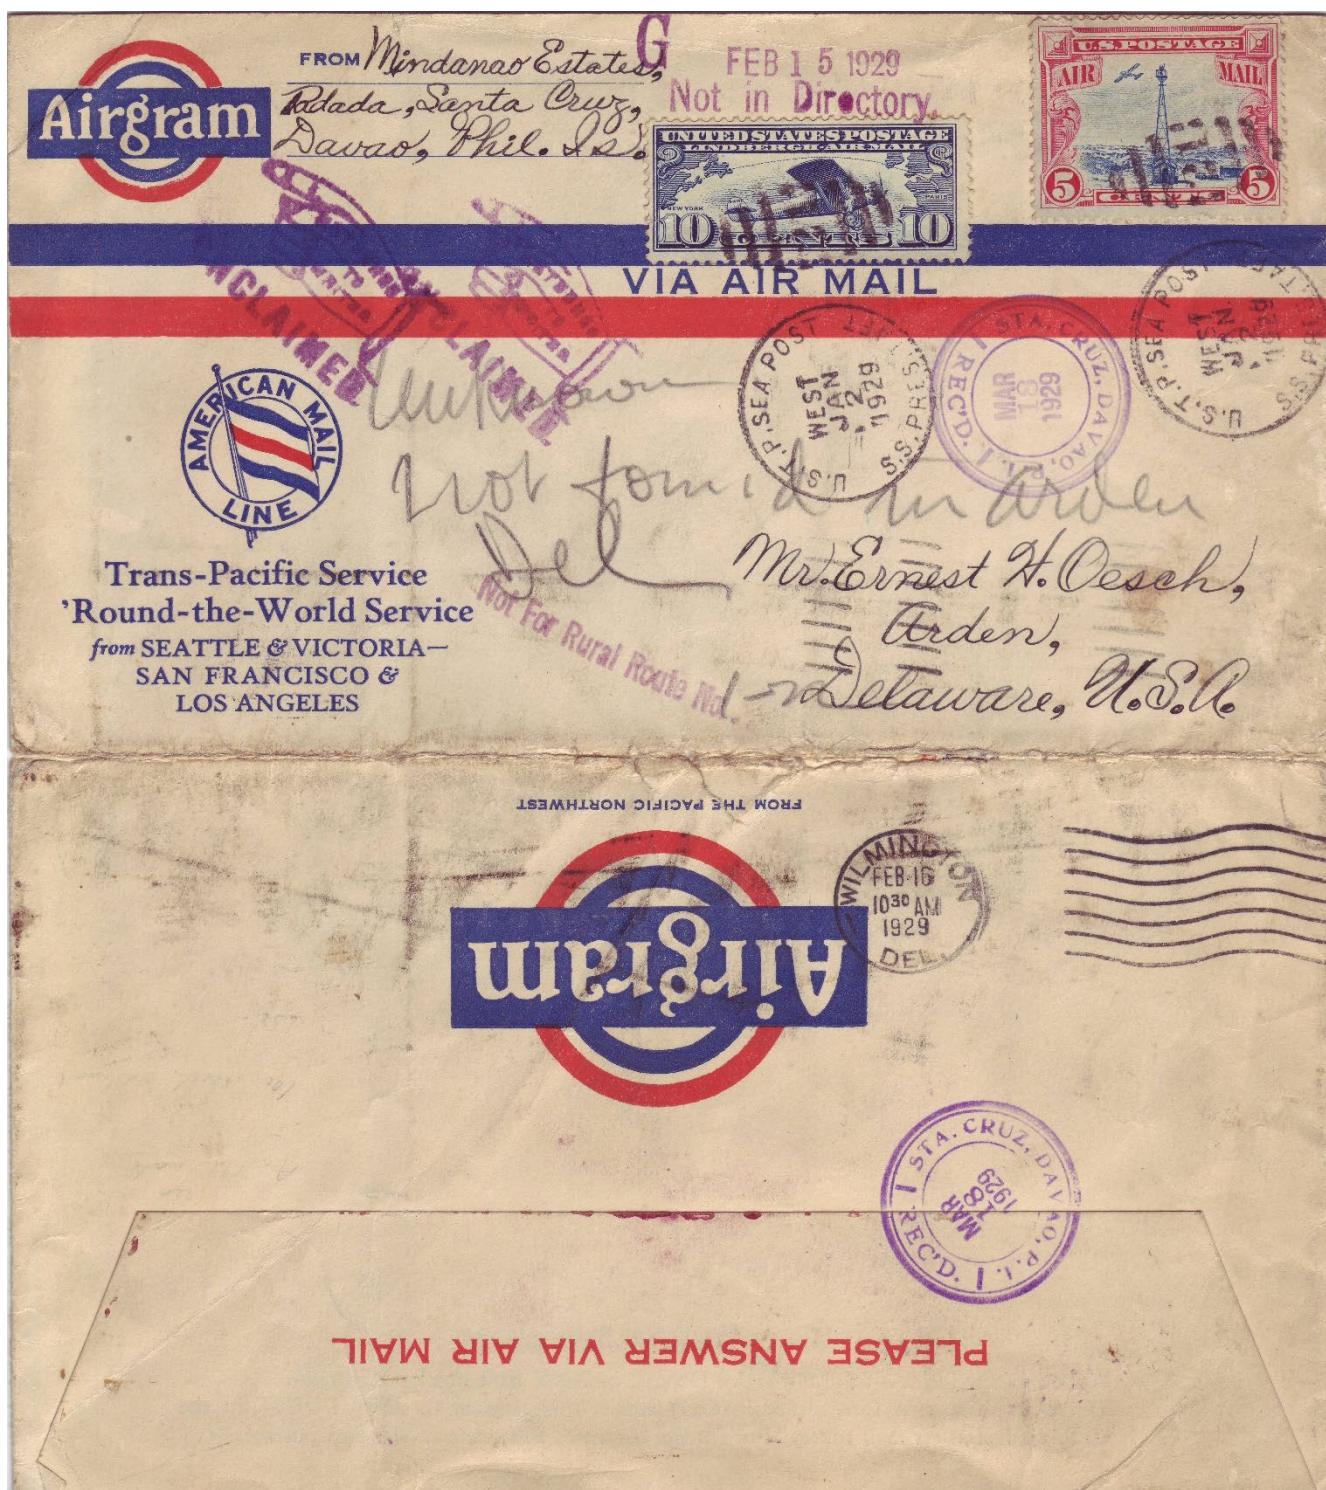 Airgram
FROM Mindanao Estates,
Padada, Santa Cruz,
Davao, Phil. Is.
G
FEB 15 1929
Not in Directory.
UNITED STATES POSTAGE
LINDBERGH AIR MAIL
NEW YORK
PARIS
10 CENTS 10
U.S. POSTAGE
AIR MAIL
5 CENTS 5
VIA AIR MAIL
UNCLAIMED.
UNCLAIMED.
U.S.T.P. SEA POST
WEST
JAN
2
1929
S.S. PRES.
STA. CRUZ, DAVAO, P.I.
MAR
18
1929
REC'D.
U.S.T.P. SEA POST
WEST
JAN
2
1929
S.S. PRES.
AMERICAN MAIL
LINE
Unknown
Not found in Arden
Del
Trans-Pacific Service
'Round-the-World Service
from SEATTLE & VICTORIA—
SAN FRANCISCO &
LOS ANGELES
Not For Rural Route No.
Mr. Ernest H. Oesch,
Arden,
Delaware, U.S.A.
FROM THE PACIFIC NORTHWEST
Airgram
WILMINGTON
FEB 16
10 30 AM
1929
DEL.
STA. CRUZ, DAVAO, P.I.
MAR
18
1929
REC'D.
PLEASE ANSWER VIA AIR MAIL